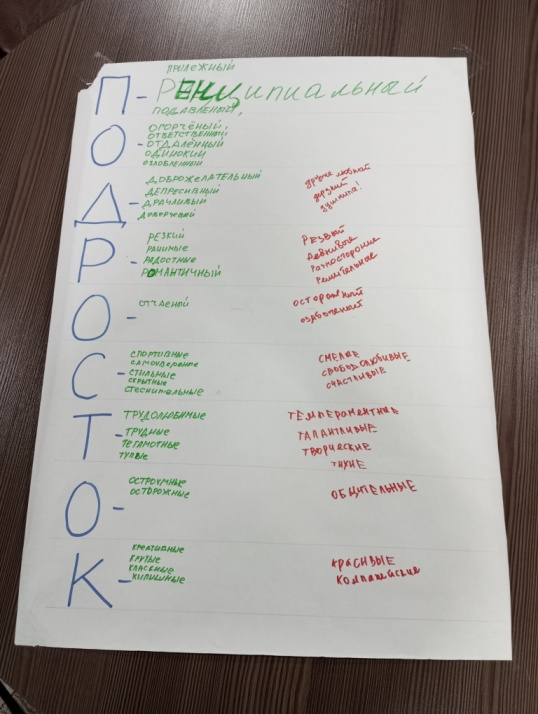 ПРИЛЕЖНЫЙ
П - РЕНЦипиальный
ПОДАВЛЕНЫЙ,
ОГОРЧЁНЫЙ,
ОТВЕТСТВЕННЫЙ
О - ОТДАЛЁННЫЙ
ОДИНОКИЙ
ОЗЛОБЛЕННЫЙ
ДОБРОЖЕЛАТЕЛЬНЫЙ
ДЕПРЕСИВНЫЙ
Д - ДРАЧЛИВЫЙ
ДОВЕРЧЕВЫЙ
дружелюбной
дерзкий
душнила!
РЕЗКИЙ
РАНИМЫЕ
Р - РАДОСТНЫЕ
РОМАНТИЧНЫЙ
РЕЗВЫЙ
Ревнивые
Разносторонние
Решительные
О - ОТЧАЕНЫЙ
ОСТОРОЖНЫЙ
озабоченый
СПОРТИВНЫЕ
САМОУВЕРЕННЫЕ
С - СТИЛЬНЫЕ
СКРЫТНЫЕ
СТЕСНИТЕЛЬНЫЕ
СМЕЛЫЕ
СВОБОДОЛЮБИВЫЕ
СЧАСТЛИВЫЕ
ТРУДОЛЮБИМЫЕ
Т - ТРУДНЫЕ
ТУПЫЕ
ТЕМПЕРАМЕНТНЫЕ
ТАЛАНТЛИВЫЕ
ТВОРЧЕСКИЕ
ТИХИЕ
О - ОСТРОУМНЫЕ
ОСТОРОЖНЫЕ
ОБЩИТЕЛЬНЫЕ
КРЕАТИВНЫЕ
КРУТЫЕ
К - КЛАССНЫЕ
КИПИШНЫЕ
КРАСИВЫЕ
Компанейские